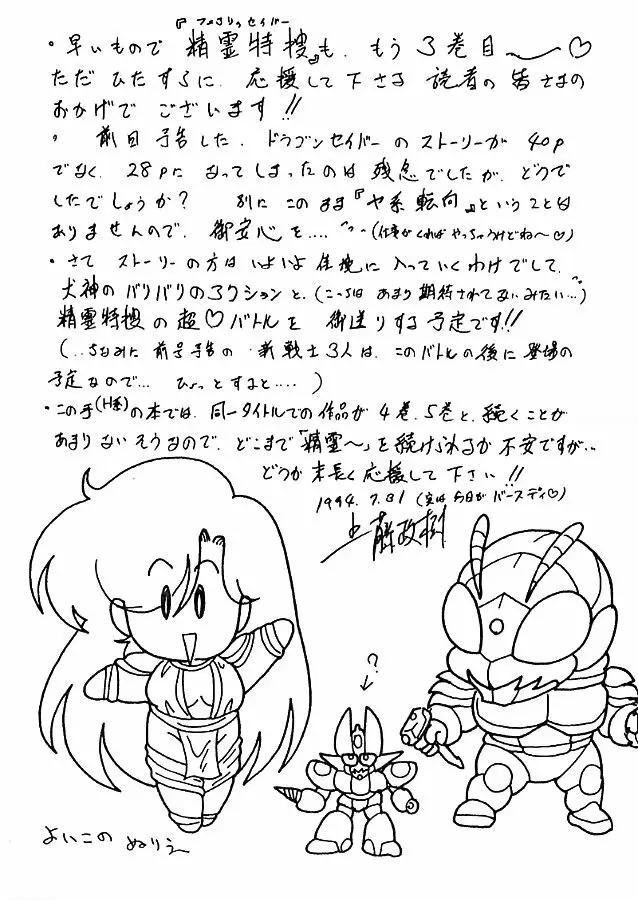 『フェアリィセイバー
・早いもので 精霊特捜』も、もう 3巻目〜♡
ただ ひたすらに、応援して下さる 読者の 皆さまの
おかげで ございます!!
・ 前回 予告した、ドラゴンセイバーのストーリーが 40p
でなく、28pになってしまったのは 残念でしたが、どうで
したでしょうか? 別に このまま『ヤ系転向』ということは
ありませんので、御安心を…… (仕事がくればやっちゃうけどね〜♡)
・さて ストーリーの方は いよいよ 佳境に 入っていくわけでして、
犬神のバリバリのアクションと、(こっちは あまり期待されてないみたい…)
精霊特捜の超♡バトルを 御送りする予定です!!
(‥ちなみに 前号予告の 新戦士3人は、このバトルの後に登場の
予定なので… ひょっとすると‥‥)
・この手(H系)の本では、同一タイトルでの作品が 4巻、5巻と、続くことが
あまりないそうなので、どこまで「精霊〜」を続けられるか 不安ですが‥
どうか 末長く 応援して 下さい!!
1994.7.31 (実は今日がバースディ♡)
上藤政樹
?
よいこの ぬりえ